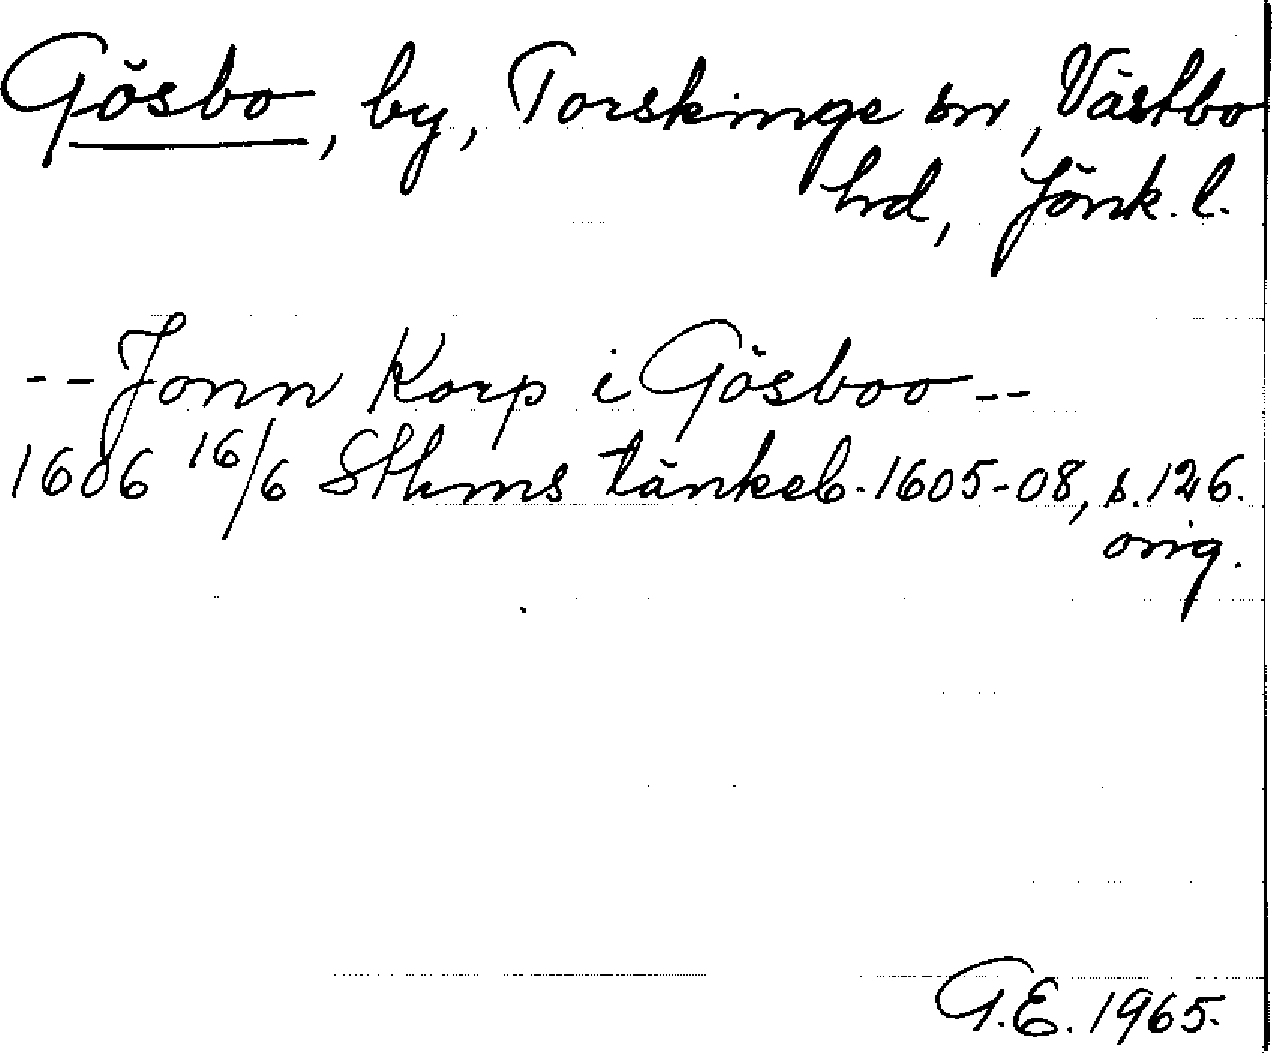 Gösbo, by, Torskinge sn, Västbo
hrd, Jönk. l.
-- Jonn Korp i Gösboo --
1606 16/6 Sthms tänkeb. 1605-08, s. 126.
orig.
G.E. 1965.